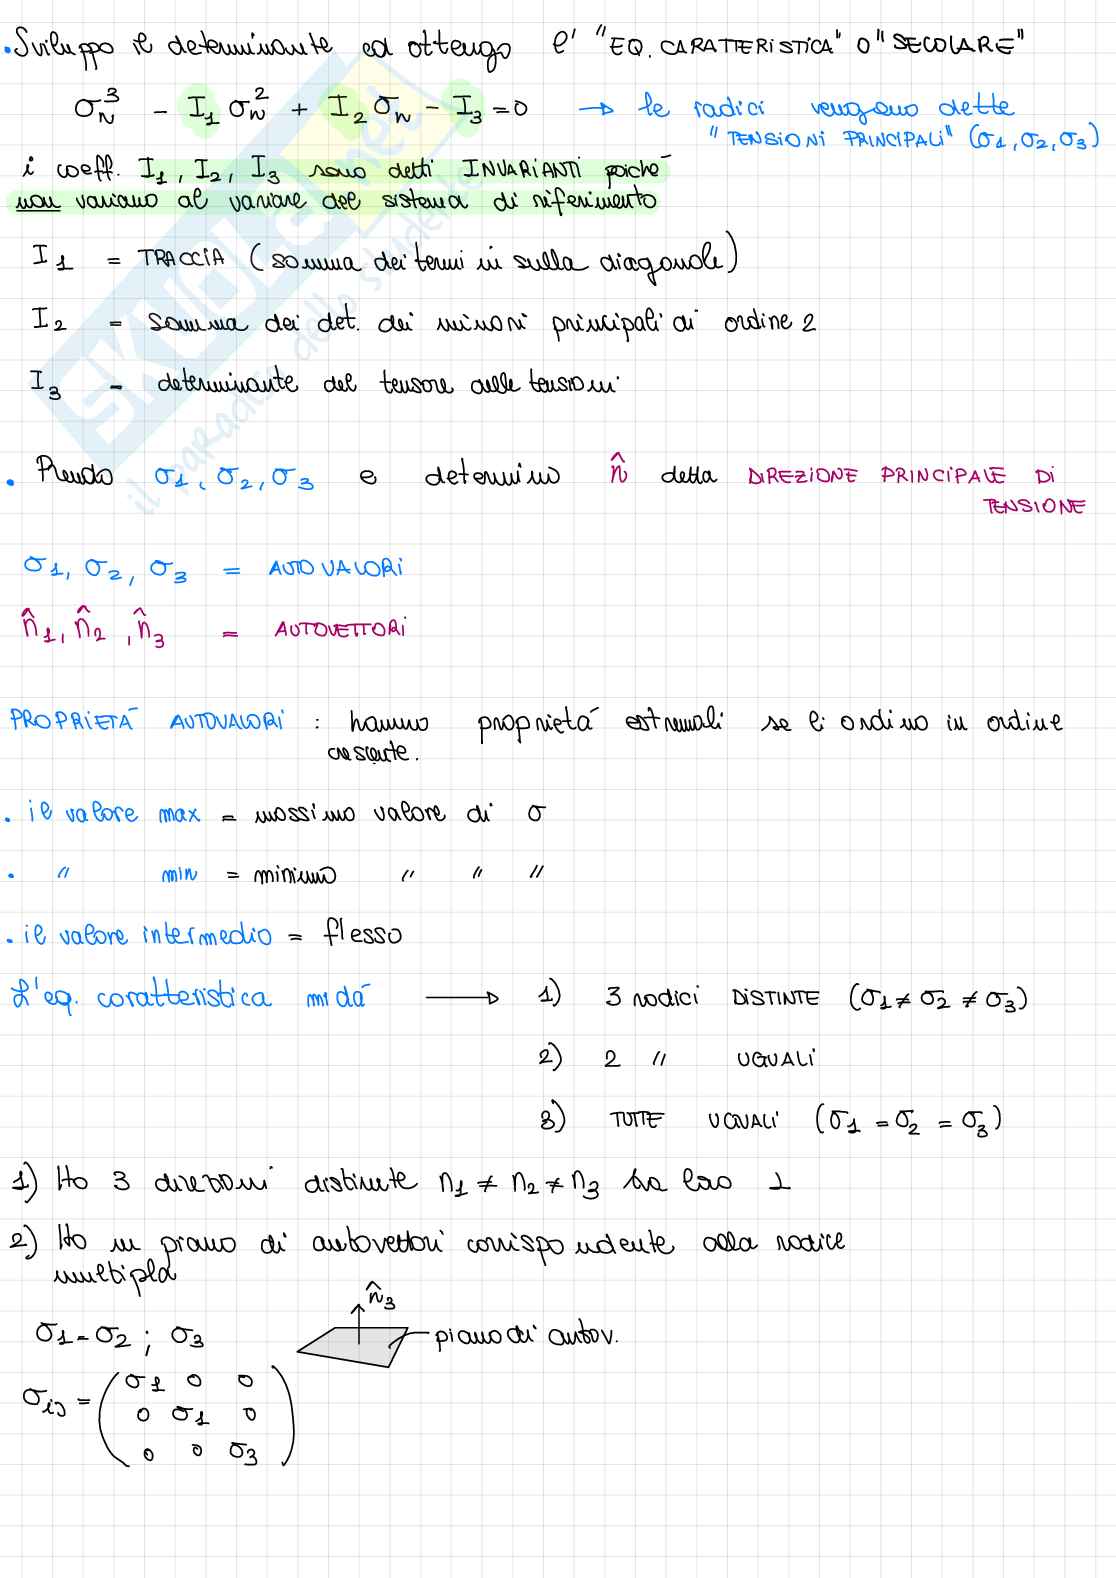 • Sviluppo il determinante ed ottengo l' "EQ. CARATTERISTICA" O "SECOLARE"
σ_N^3 - I_1 σ_N^2 + I_2 σ_N - I_3 = 0 → le radici vengono dette
"TENSIONI PRINCIPALI" (σ_1, σ_2, σ_3)
i coeff. I_1, I_2, I_3 sono detti INVARIANTI poiché
non variano al variare del sistema di riferimento
I_1 = TRACCIA (somma dei termini sulla diagonale)
I_2 = somma dei det. dei minori principali di ordine 2
I_3 = determinante del tensore delle tensioni
• Prendo σ_1, σ_2, σ_3 e determino n̂ detta DIREZIONE PRINCIPALE DI
TENSIONE
σ_1, σ_2, σ_3 = AUTOVALORI
n̂_1, n̂_2, n̂_3 = AUTOVETTORI
PROPRIETÁ AUTOVALORI : hanno proprietá estremali se li ordino in ordine
crescente.
• il valore max = massimo valore di σ
• " min = minimo " " "
• il valore intermedio = flesso
L'eq. caratteristica mi dá → 1) 3 radici DISTINTE (σ_1 ≠ σ_2 ≠ σ_3)
2) 2 " UGUALI
3) TUTTE UGUALI (σ_1 = σ_2 = σ_3)
1) Ho 3 direzioni distinte n_1 ≠ n_2 ≠ n_3 tra loro ⊥
2) Ho un piano di autovettori corrispondente alla radice
multipla
n̂_3
σ_1 = σ_2 ; σ_3 piano di autov.
σ_ij = (σ_1 0 0
0 σ_1 0
0 0 σ_3)
SKUOLA.net
il paradiso dello studente